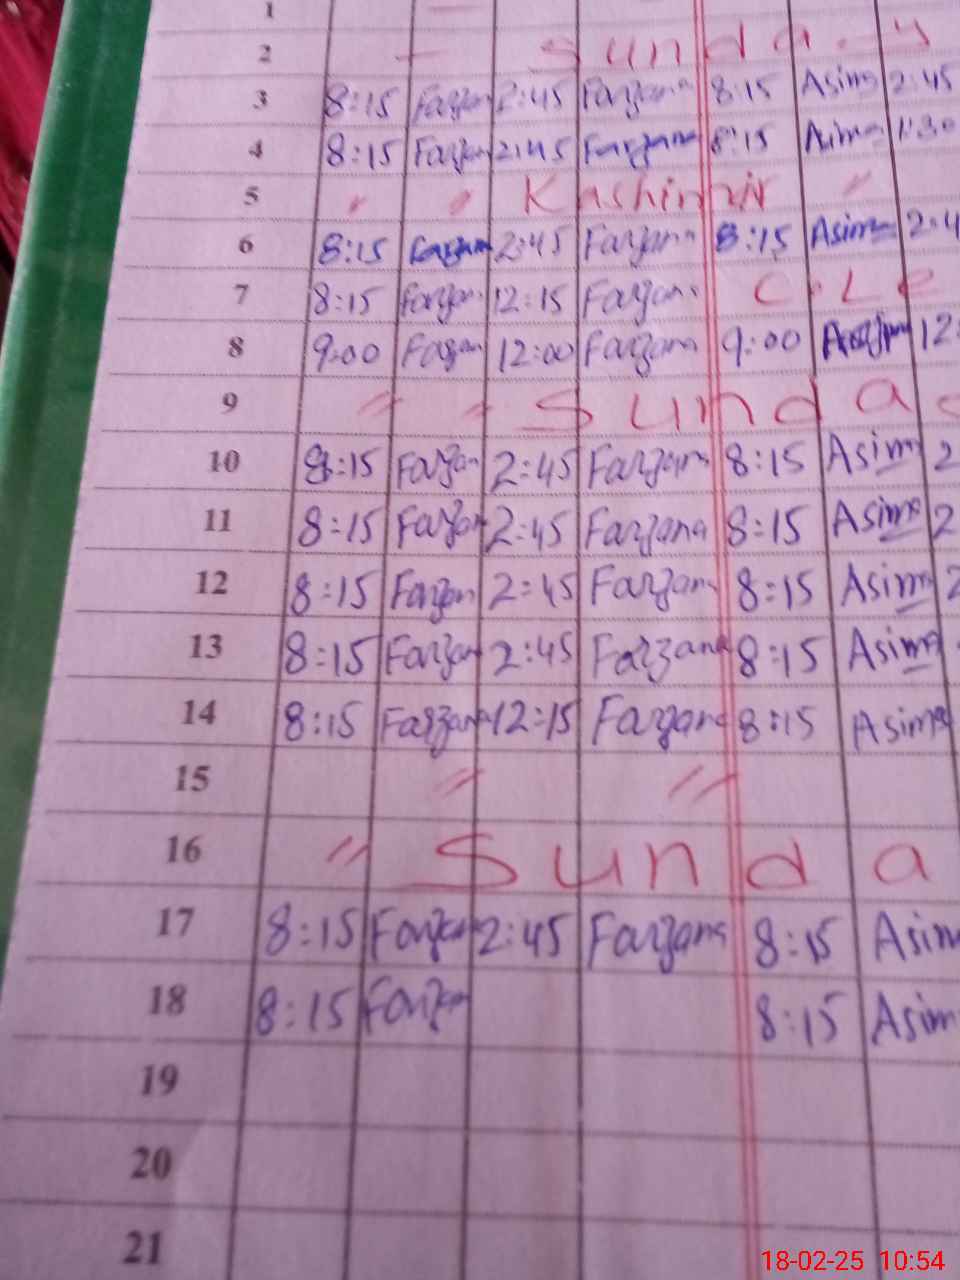 1
2 Sunday
3 8:15 Farzan 2:45 Farzana 8:15 Asima 2:45
4 8:15 Farzan 2:45 Farzana 8:15 Asima 1:30
5 " " Kashimir "
6 8:15 Farzana 2:45 Farzana 8:15 Asima 2:4
7 8:15 Farzan 12:15 Farzana C. L e
8 9:00 Fazan 12:00 Farzana 9:00 12:
9 " " Sunda
10 8:15 Farzan 2:45 Farzana 8:15 Asima 2
11 8:15 Farzan 2:45 Farzana 8:15 Asima 2
12 8:15 Farzan 2:45 Farzana 8:15 Asima 2
13 8:15 Farzan 2:45 Farzana 8:15 Asima
14 8:15 Farzana 12:15 Farzana 8:15 Asima
15 " "
16 " Sunda
17 8:15 Farzan 2:45 Farzana 8:15 Asim
18 8:15 Farzan 8:15 Asim
19
20
21
18-02-25 10:54